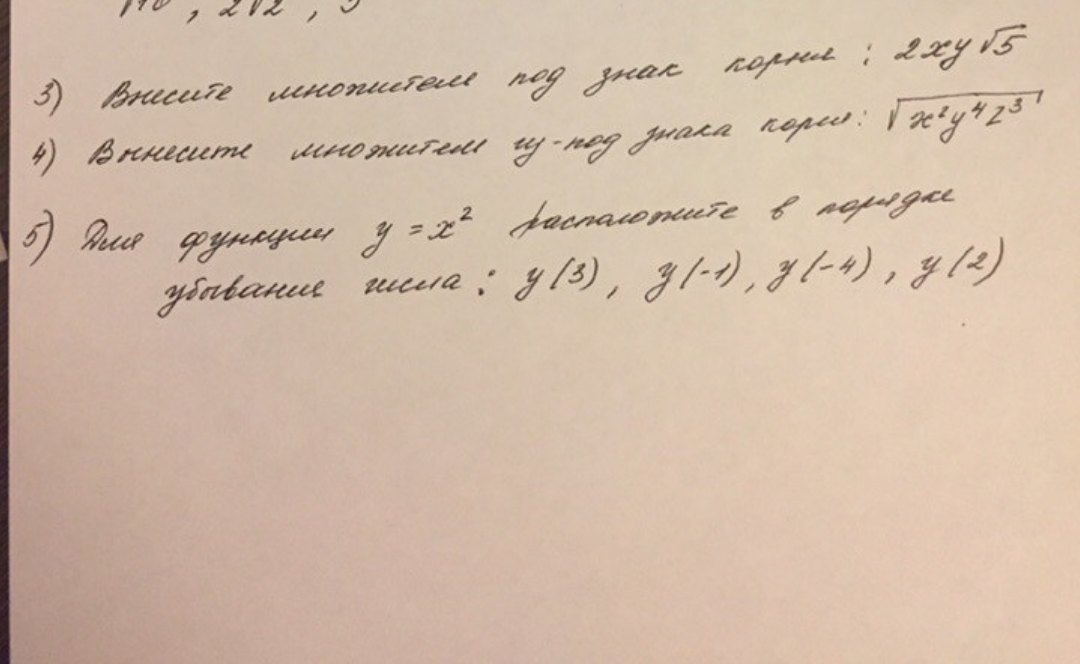 √10, 2√2, 3
3) Внесите множители под знак корня: 2xy√5
4) Вынесите множители из-под знака корня: √x²y⁴z³
5) Для функции y = x² расположите в порядке
убывания числа: y(3), y(-1), y(-4), y(2)